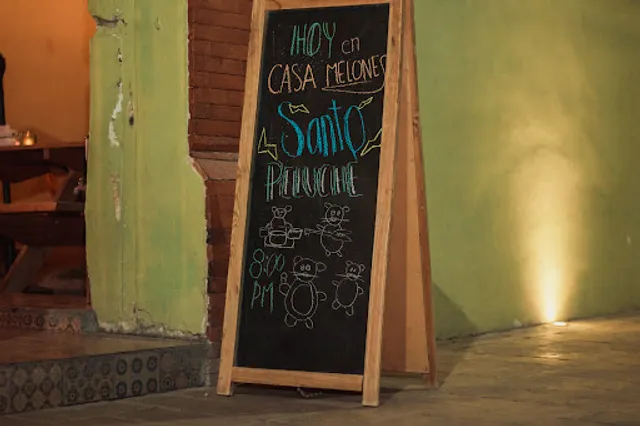 ¡HOY en
CASA MELONES
Santo
PELUCHE
8:00
PM